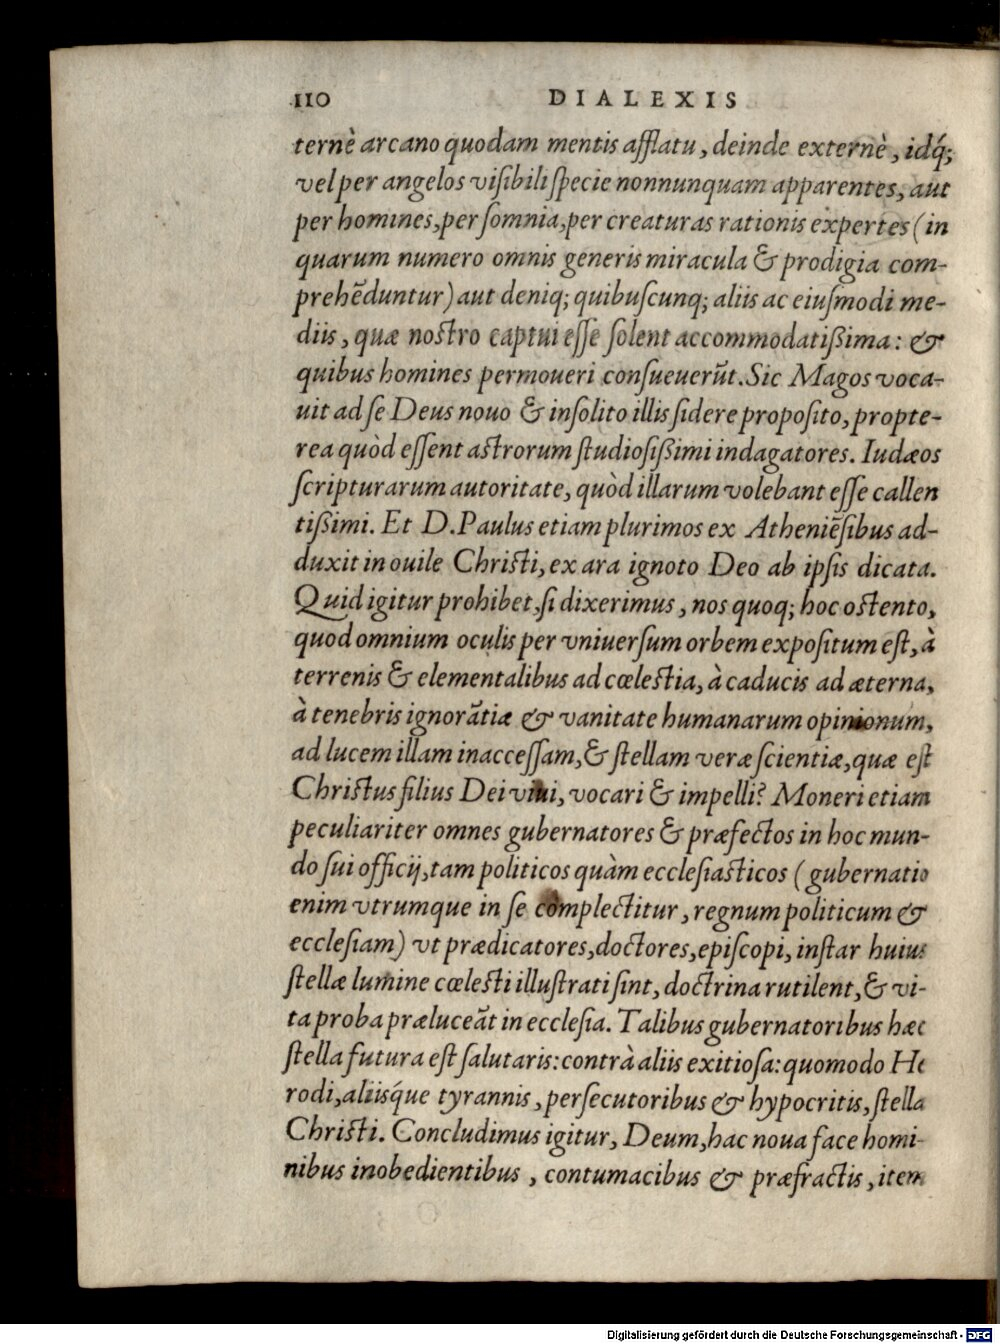 110 DIALEXIS
ternè arcano quodam mentis afflatu, deinde externè, idq́;
vel per angelos visibili specie nonnunquam apparentes, aut
per homines, per somnia, per creaturas rationis expertes (in
quarum numero omnis generis miracula & prodigia com-
prehēduntur) aut deniq; quibuscunq; aliis ac eiusmodi me-
diis, quæ nostro captui esse solent accommodatißima: &
quibus homines permoueri consueuerūt. Sic Magos voca-
uit ad se Deus nouo & insolito illis sidere proposito, propte-
rea quòd essent astrorum studiosißimi indagatores. Iudæos
scripturarum autoritate, quòd illarum volebant esse callen
tißimi. Et D. Paulus etiam plurimos ex Atheniēsibus ad-
duxit in ouile Christi, ex ara ignoto Deo ab ipsis dicata.
Quid igitur prohibet, si dixerimus, nos quoq; hoc ostento,
quod omnium oculis per vniuersum orbem expositum est, à
terrenis & elementalibus ad cœlestia, à caducis ad æterna,
à tenebris ignorātiæ & vanitate humanarum opinionum,
ad lucem illam inaccessam, & stellam veræ scientiæ, quæ est
Christus filius Dei viui, vocari & impelli? Moneri etiam
peculiariter omnes gubernatores & præfectos in hoc mun-
do sui officij, tam politicos quàm ecclesiasticos (gubernatio
enim vtrumque in se complectitur, regnum politicum &
ecclesiam) vt prædicatores, doctores, episcopi, instar huius
stellæ lumine cœlesti illustrati sint, doctrina rutilent, & vi-
ta proba præluceāt in ecclesia. Talibus gubernatoribus hæc
stella futura est salutaris: contrà aliis exitiosa: quomodo He
rodi, aliisq́ue tyrannis, persecutoribus & hypocritis, stella
Christi. Concludimus igitur, Deum, hac noua face homi-
nibus inobedientibus, contumacibus & præfractis, item
Digitalisierung gefördert durch die Deutsche Forschungsgemeinschaft - DFG